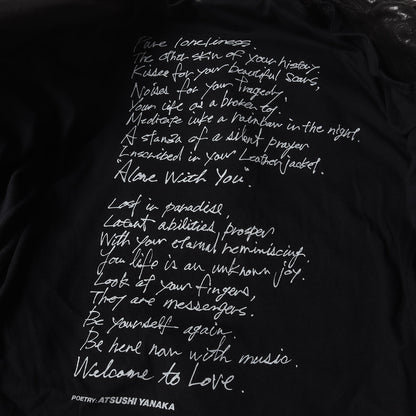 Pure loneliness.
The other skin of your history.
Kisses for your beautiful scars,
Noises for your Tragedy,
Your life as a broken toy.
Meditate like a rainbow in the night.
A stanza of a silent prayer
Inscribed in your Leather jacket.
"Alone With You".
Lost in paradise,
Latent abilities prosper
With your eternal reminiscing.
Your life is an unknown joy.
Look at your fingers,
They are messengers.
Be yourself again.
Be here now with music.
Welcome to Love.
POETRY: ATSUSHI YANAKA